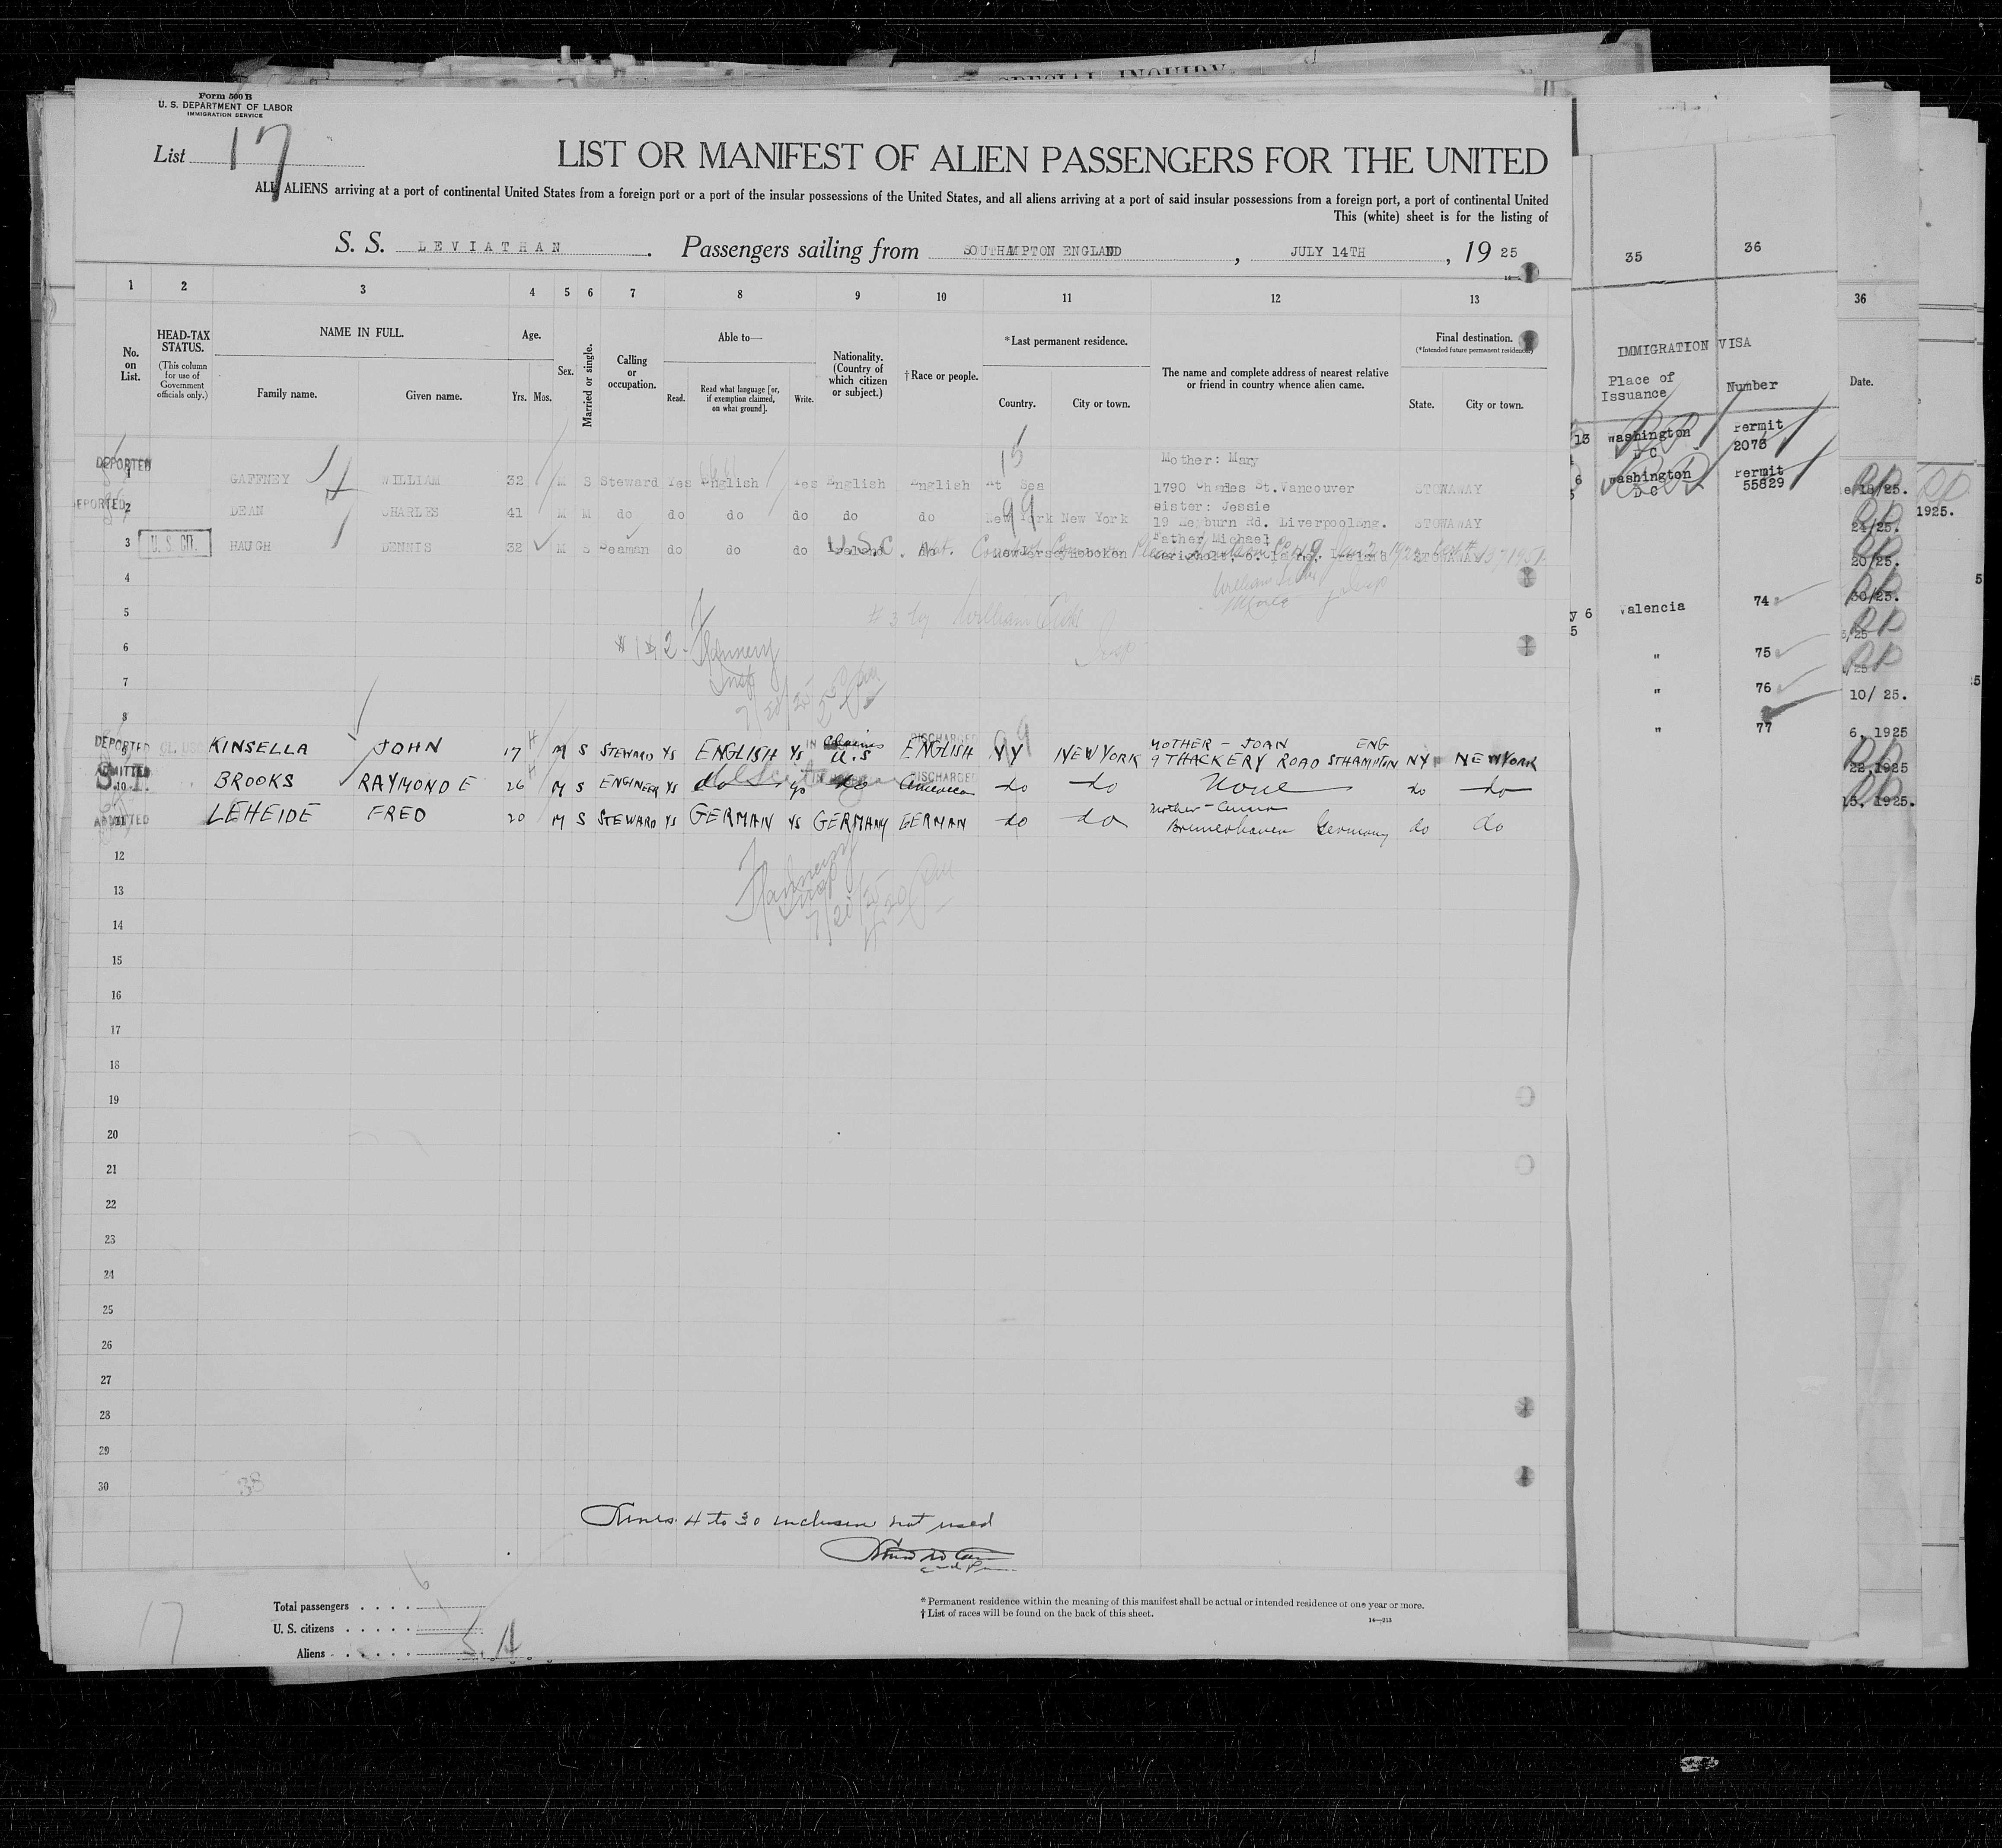 SPECIAL INQUIRY
Form 500 B
U. S. DEPARTMENT OF LABOR
IMMIGRATION SERVICE
List 17
LIST OR MANIFEST OF ALIEN PASSENGERS FOR THE UNITED
ALL ALIENS arriving at a port of continental United States from a foreign port or a port of the insular possessions of the United States, and all aliens arriving at a port of said insular possessions from a foreign port, a port of continental United
This (white) sheet is for the listing of
S. S. LEVIATHAN. Passengers sailing from SOUTHAMPTON ENGLAND, JULY 14TH, 19 25
1 2 3 4 5 6 7 8 9 10 11 12 13
No. on List.
HEAD-TAX STATUS.
(This column for use of Government officials only.)
NAME IN FULL.
Family name. Given name.
Age.
Yrs. Mos.
Sex.
Married or single.
Calling or occupation.
Able to—
Read. Read what language [or, if exemption claimed, on what ground]. Write.
Nationality. (Country of which citizen or subject.)
† Race or people.
* Last permanent residence.
Country. City or town.
The name and complete address of nearest relative or friend in country whence alien came.
Final destination.
(*Intended future permanent residence)
State. City or town.
15
Mother: Mary
DEPORTED 1 GAFFNEY WILLIAM 32 M S Steward Yes English Yes English English At Sea 1790 Charles St. Vancouver STOWAWAY
Sister: Jessie
DEPORTED 2 DEAN CHARLES 41 M M do do do do do do New York New York 19 Rd. Liverpool Eng. STOWAWAY
99
Father Michael
3 U.S. CIT. HAUGH DENNIS 32 M S Seaman do do do U.S.C. New Jersey Hoboken Ireland STOWAWAY
4
5
# 3 by William
6
# 1 & 2 - Flannery
Insp
7
8
DEPORTED 9 KINSELLA JOHN 17 M S STEWARD YS ENGLISH YS Claims U.S ENGLISH NY NEW YORK MOTHER - JOAN 9 THACKERY ROAD STHAMPTON ENG NY NEW YORK
DISCHARGED
99
ADMITTED 10 BROOKS RAYMOND E 26 M S ENGINEER YS do ys do American do do None do do
S.I.
DISCHARGED
ADMITTED 11 LEHEIDE FRED 20 M S STEWARD YS GERMAN YS GERMANY GERMAN do do Mother - Anna Bremerhaven Germany do do
12
Flannery
Insp
13
14
15
16
17
18
19
20
21
22
23
24
25
26
27
28
29
30
38
Lines 4 to 30 inclusive not used
17
Total passengers
U. S. citizens
Aliens
* Permanent residence within the meaning of this manifest shall be actual or intended residence of one year or more.
† List of races will be found on the back of this sheet.
14—213
35 36
IMMIGRATION VISA
Place of Issuance Number
13 Washington D C Permit 2073
6 Washington D C Permit 55829
y 6 Valencia 74
5
" 75
" 76
" 77
36
Date.
e 18/25.
24/25.
20/25.
30/25.
10/ 25.
6, 1925
22, 1925
15. 1925.
1925.